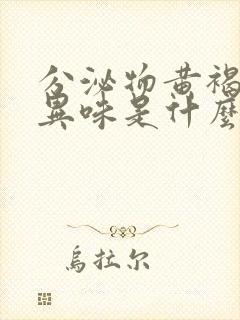 分泌物黄褐
異味是什麼
烏拉尔